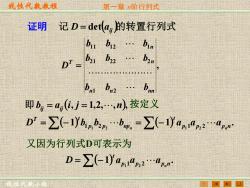 线性代数教程 第一章 n阶行列式
证明 记 D = det(a_ij) 的转置行列式
b_11 b_12 ⋯ b_1n
D^T = b_21 b_22 ⋯ b_2n ,
⋯⋯⋯⋯⋯⋯
b_n1 b_n2 ⋯ b_nn
即 b_ij = a_ij (i, j = 1,2,⋯,n), 按定义
D^T = ∑(−1)^t b_1p_1 b_2p_2 ⋯ b_np_n = ∑(−1)^t a_p_1 1 a_p_2 2 ⋯ a_p_n n.
又因为行列式D可表示为
D = ∑(−1)^t a_p_1 1 a_p_2 2 ⋯ a_p_n n.